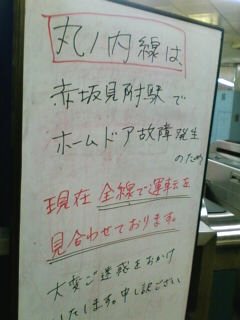 丸ノ内線は、
赤坂見附駅で
ホームドア故障発生
のため
現在 全線で運転を
見合わせております
大変ご迷惑をおかけ
いたします。申し訳ござい